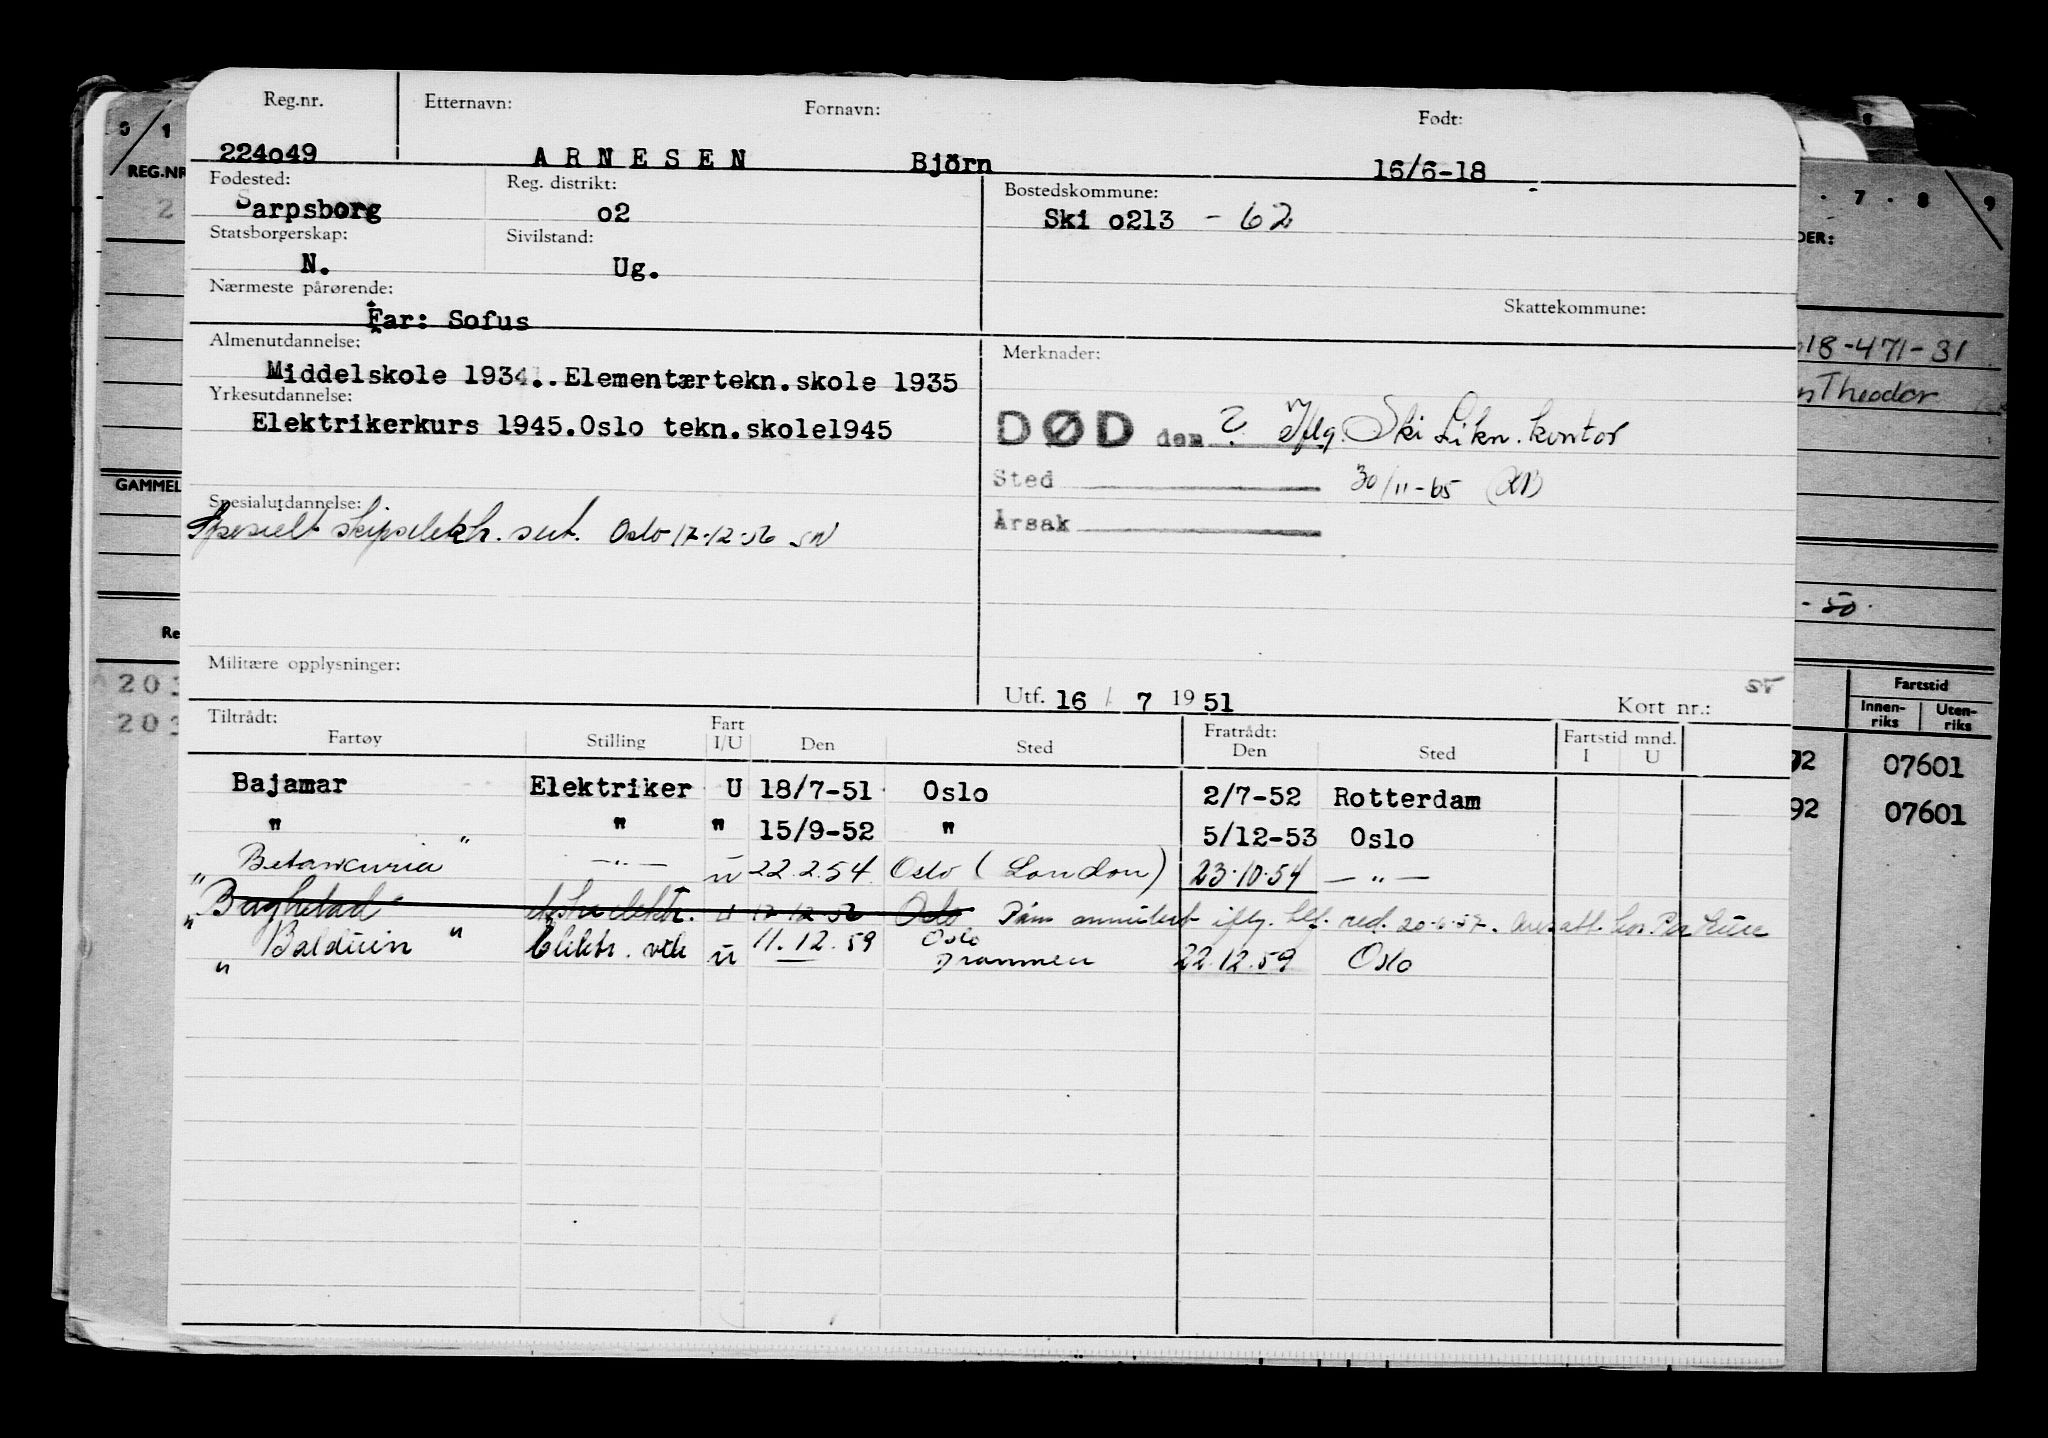 Reg.nr. Etternavn: Fornavn: Født:
224o49 ARNESEN Björn 16/6-18
Fødested: Reg. distrikt: Bostedskommune:
Sarpsborg o2 Ski o213 - 62
Statsborgerskap: Sivilstand:
N. Ug.
Nærmeste pårørende: Skattekommune:
Far: Sofus
Almenutdannelse: Merknader:
Middelskole 1934..Elementærtekn.skole 1935
Yrkesutdannelse:
Elektrikerkurs 1945.Oslo tekn.skole1945
DØD den ? Iflg. Ski Likn. kontor
Sted 30/11-65
Årsak
Spesialutdannelse:
Spesielt skipselektr. sert. Oslo 17-12-56 SN
Militære opplysninger:
Utf. 16 / 7 1951 Kort nr.:
Tiltrådt: Fart Fratrådt: Fartstid mnd.
Fartøy Stilling I/U Den Sted Den Sted I U
Bajamar Elektriker U 18/7-51 Oslo 2/7-52 Rotterdam
" " " 15/9-52 " 5/12-53 Oslo
"Betancuria" —"— u 22.2.54 Oslo (London) 23.10.54 —"—
"Baghdad" elektr. u 17.12.56 Oslo Påm annulert iflg. red. 20-6-57.
"Balduin" Elektr. u 11.12.59 Oslo Drammen 22.12.59 Oslo
0 / 1
REG.NR
2
GAMMEL
Re
203
203
7 8 9
DER:
018-471-31
Theodor
-50.
Fartstid
Innen-riks Uten-riks
92 07601
92 07601